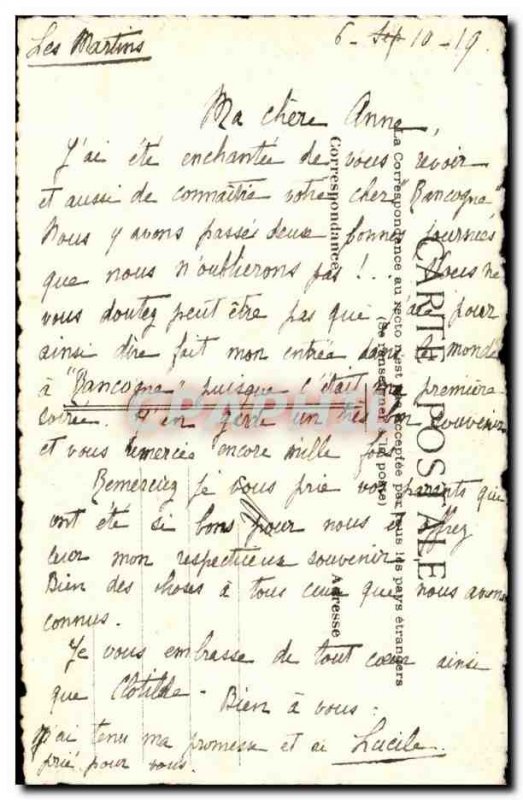 Les Martins
6 - 10 - 19.
Ma chère Anne,
J'ai été enchantée de vous revoir
et aussi de connaître votre cher "Rancogne"
Nous y avons passés deux bonnes journées
que nous n'oublierons pas ! .. Vous ne
vous doutez peut être pas que j'ai pour
ainsi dire fait mon entrée dans le monde
à "Rancogne" puisque c'était ma première
soirée. J'en garde un très bon souvenir
et vous remercie encore mille fois
Remerciez je vous prie vos parents qui
ont été si bons pour nous et offrez
leur mon respectueux souvenir
Bien des choses à tous ceux que nous avons
connus.
Je vous embrasse de tout cœur ainsi
que Clotilde - Bien à vous.
j'ai tenu ma promesse et ai Lucile
prié pour vous.
CARTE POSTALE
La Correspondance au recto n'est pas acceptée par tous les pays étrangers
(Se renseigner à la poste)
Correspondance
Adresse